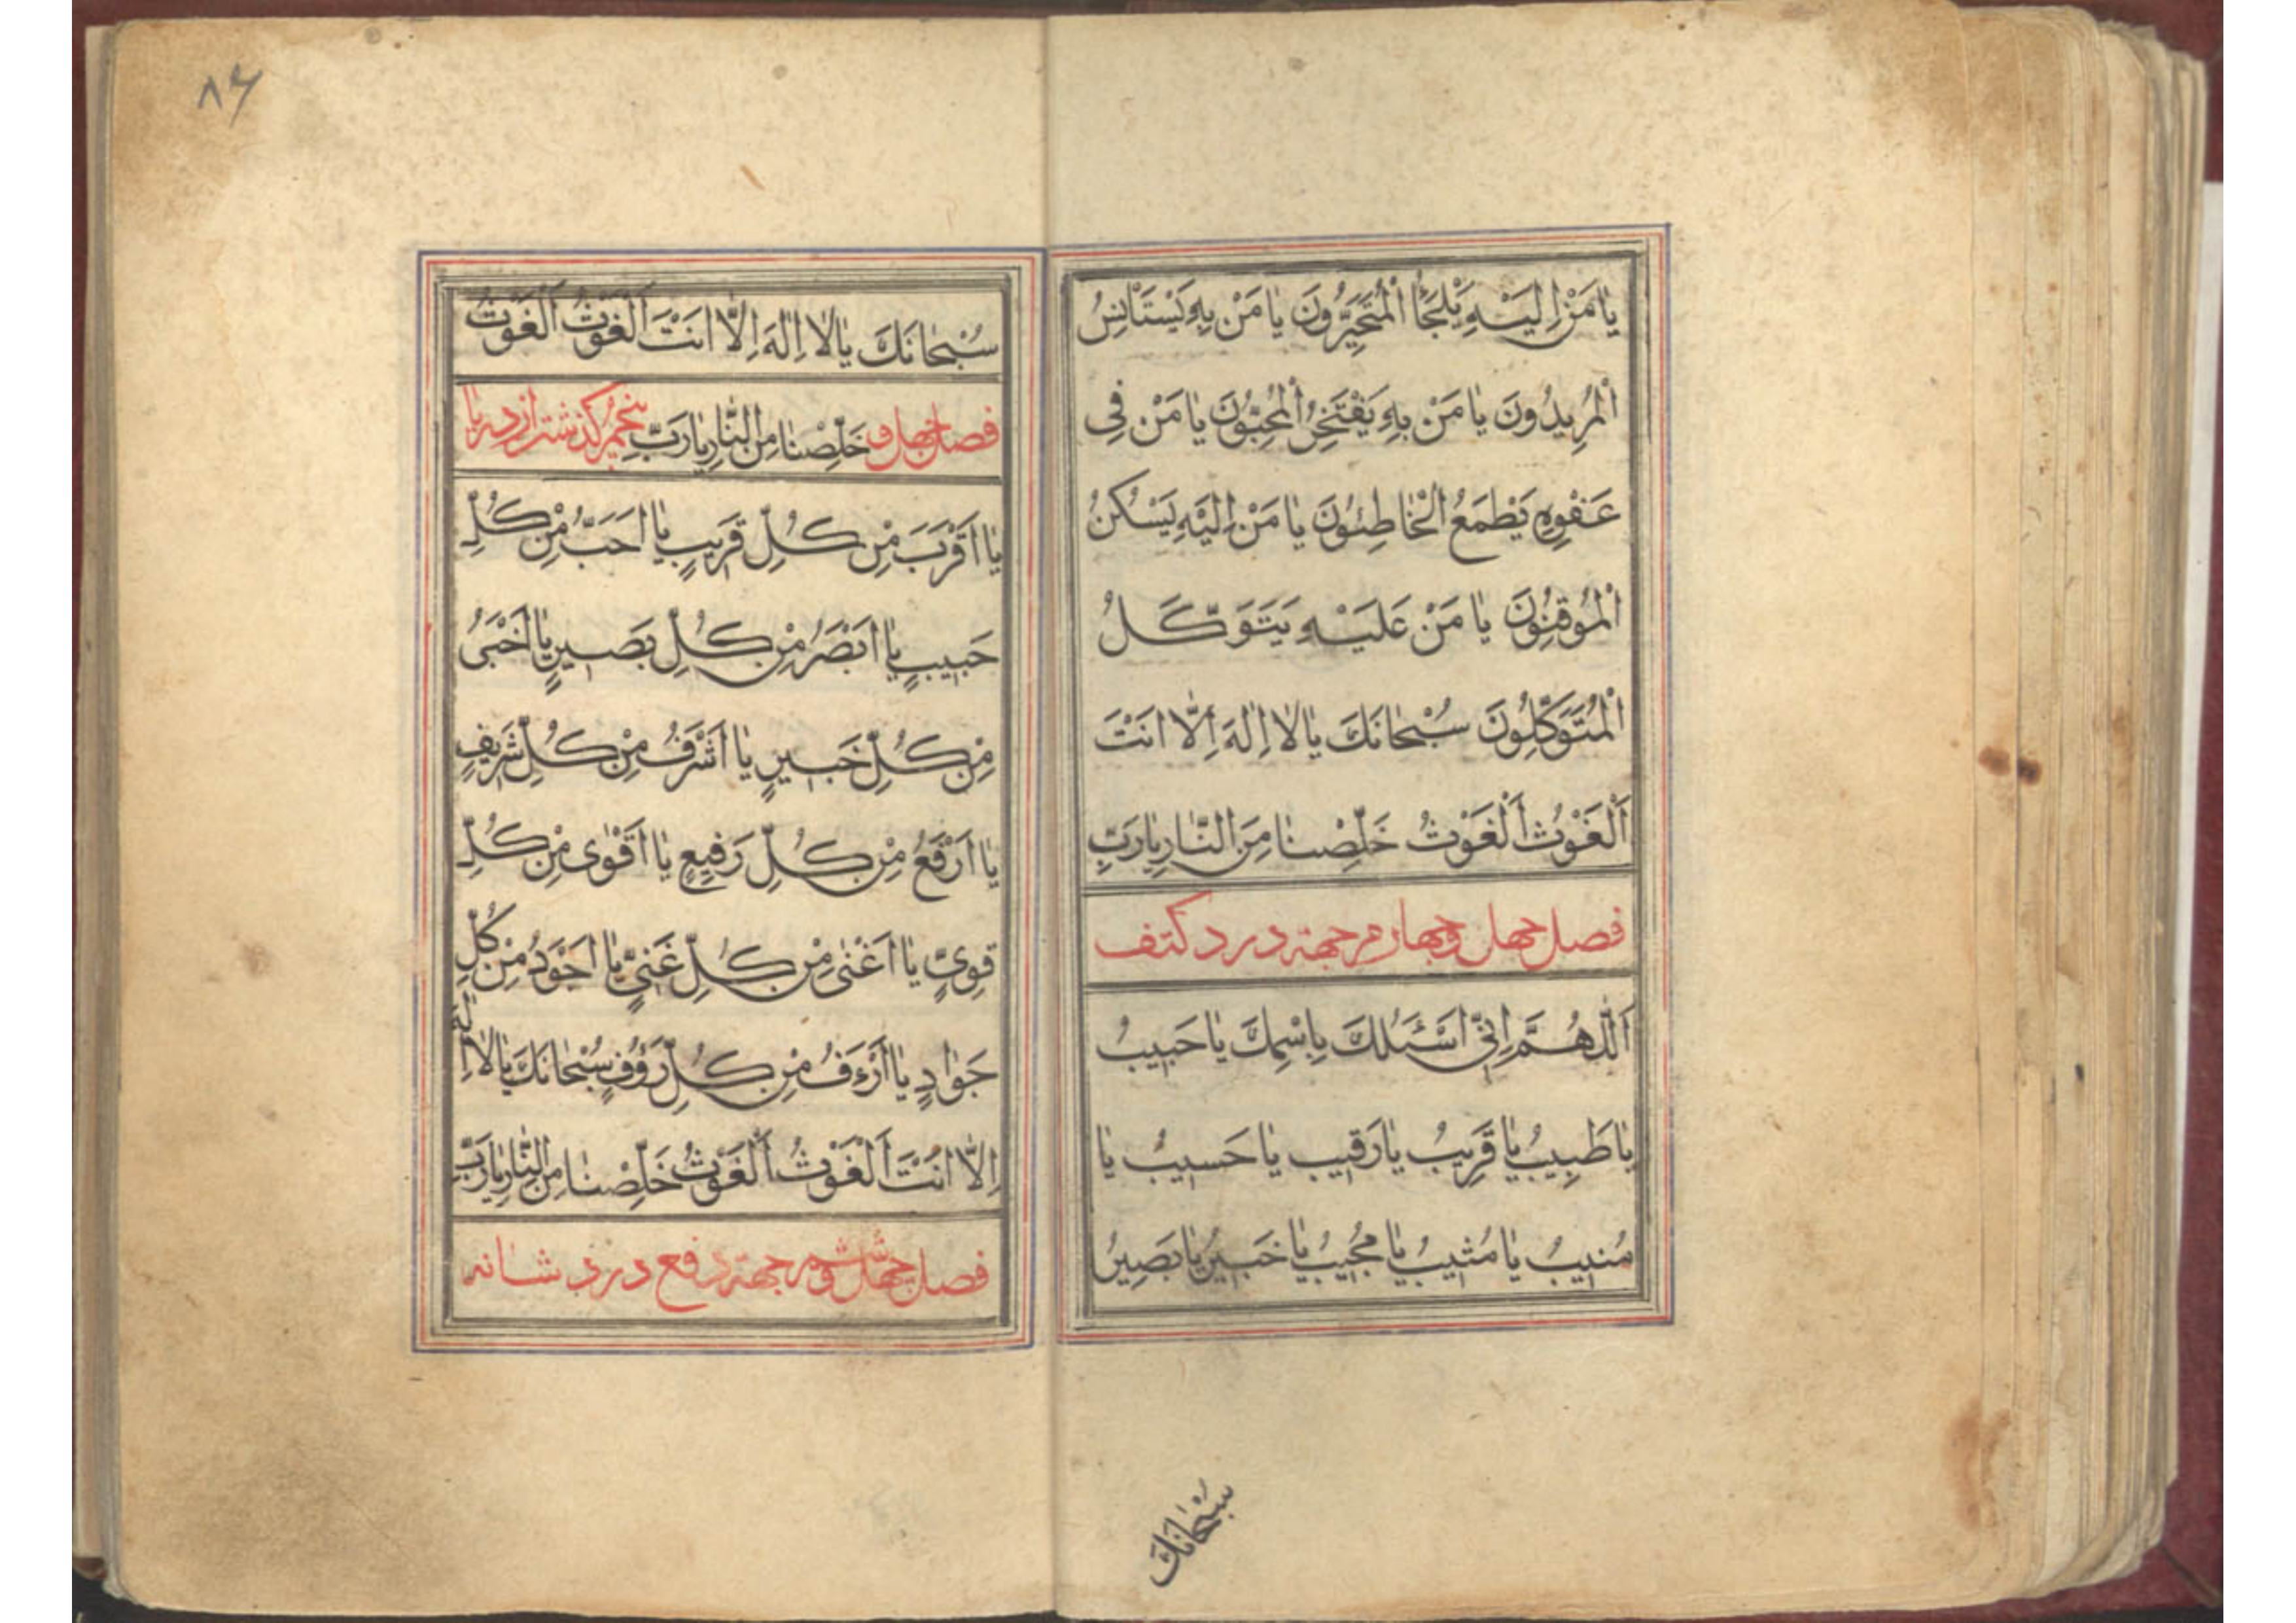 يٰا مَنْ اِلَيْهِ يَلْجَأُ الْمُتَحَيِّرُونَ يٰا مَنْ بِهِ يَسْتَاْنِسُ
الْمُرِيدُونَ يٰا مَنْ بِهِ يَفْتَخِرُ الْمُحِبُّونَ يٰا مَنْ فِى
عَفْوِهِ يَطْمَعُ الْخٰاطِئُونَ يٰا مَنْ اِلَيْهِ يَسْكُنُ
الْمُوقِنُونَ يٰا مَنْ عَلَيْهِ يَتَوَكَّلُ
الْمُتَوَكِّلُونَ سُبْحٰانَكَ يٰا لٰا اِلٰهَ اِلّٰا اَنْتَ
اَلْغَوْثُ اَلْغَوْثُ خَلِّصْنٰا مِنَ النّٰارِ يٰا رَبِّ
فصل چهل و چهارم جهته درد کتف
اَللّٰهُمَّ اِنِّى اَسْئَلُكَ بِاسْمِكَ يٰا حَبِيبُ
يٰا طَبِيبُ يٰا قَرِيبُ يٰا رَقِيبُ يٰا حَسِيبُ يٰا
مُنِيبُ يٰا مُثِيبُ يٰا مُجِيبُ يٰا خَبِيرُ يٰا بَصِيرُ
سُبْحٰانَكَ
۸۶
سُبْحٰانَكَ يٰا لٰا اِلٰهَ اِلّٰا اَنْتَ اَلْغَوْثُ اَلْغَوْثُ
فصل چهل و خَلِّصْنٰا مِنَ النّٰارِ يٰا رَبِّ پنجم گذشتن از دریا
يٰا اَقْرَبَ مِنْ كُلِّ قَرِيبٍ يٰا اَحَبُّ مِنْ كُلِّ
حَبِيبٍ يٰا اَبْصَرُ مِنْ كُلِّ بَصِيرٍ يٰا اَخْبَرُ
مِنْ كُلِّ خَبِيرٍ يٰا اَشْرَفُ مِنْ كُلِّ شَرِيفٍ
يٰا اَرْفَعُ مِنْ كُلِّ رَفِيعٍ يٰا اَقْوٰى مِنْ كُلِّ
قَوِىٍّ يٰا اَغْنٰى مِنْ كُلِّ غَنِىٍّ يٰا اَجْوَدُ مِنْ كُلِّ
جَوٰادٍ يٰا اَرْءَفُ مِنْ كُلِّ رَؤُفٍ سُبْحٰانَكَ يٰا لٰا اِلٰهَ
اِلّٰا اَنْتَ اَلْغَوْثُ اَلْغَوْثُ خَلِّصْنٰا مِنَ النّٰارِ يٰا رَبِّ
فصل چهل و ششم جهته دفع درد شانه